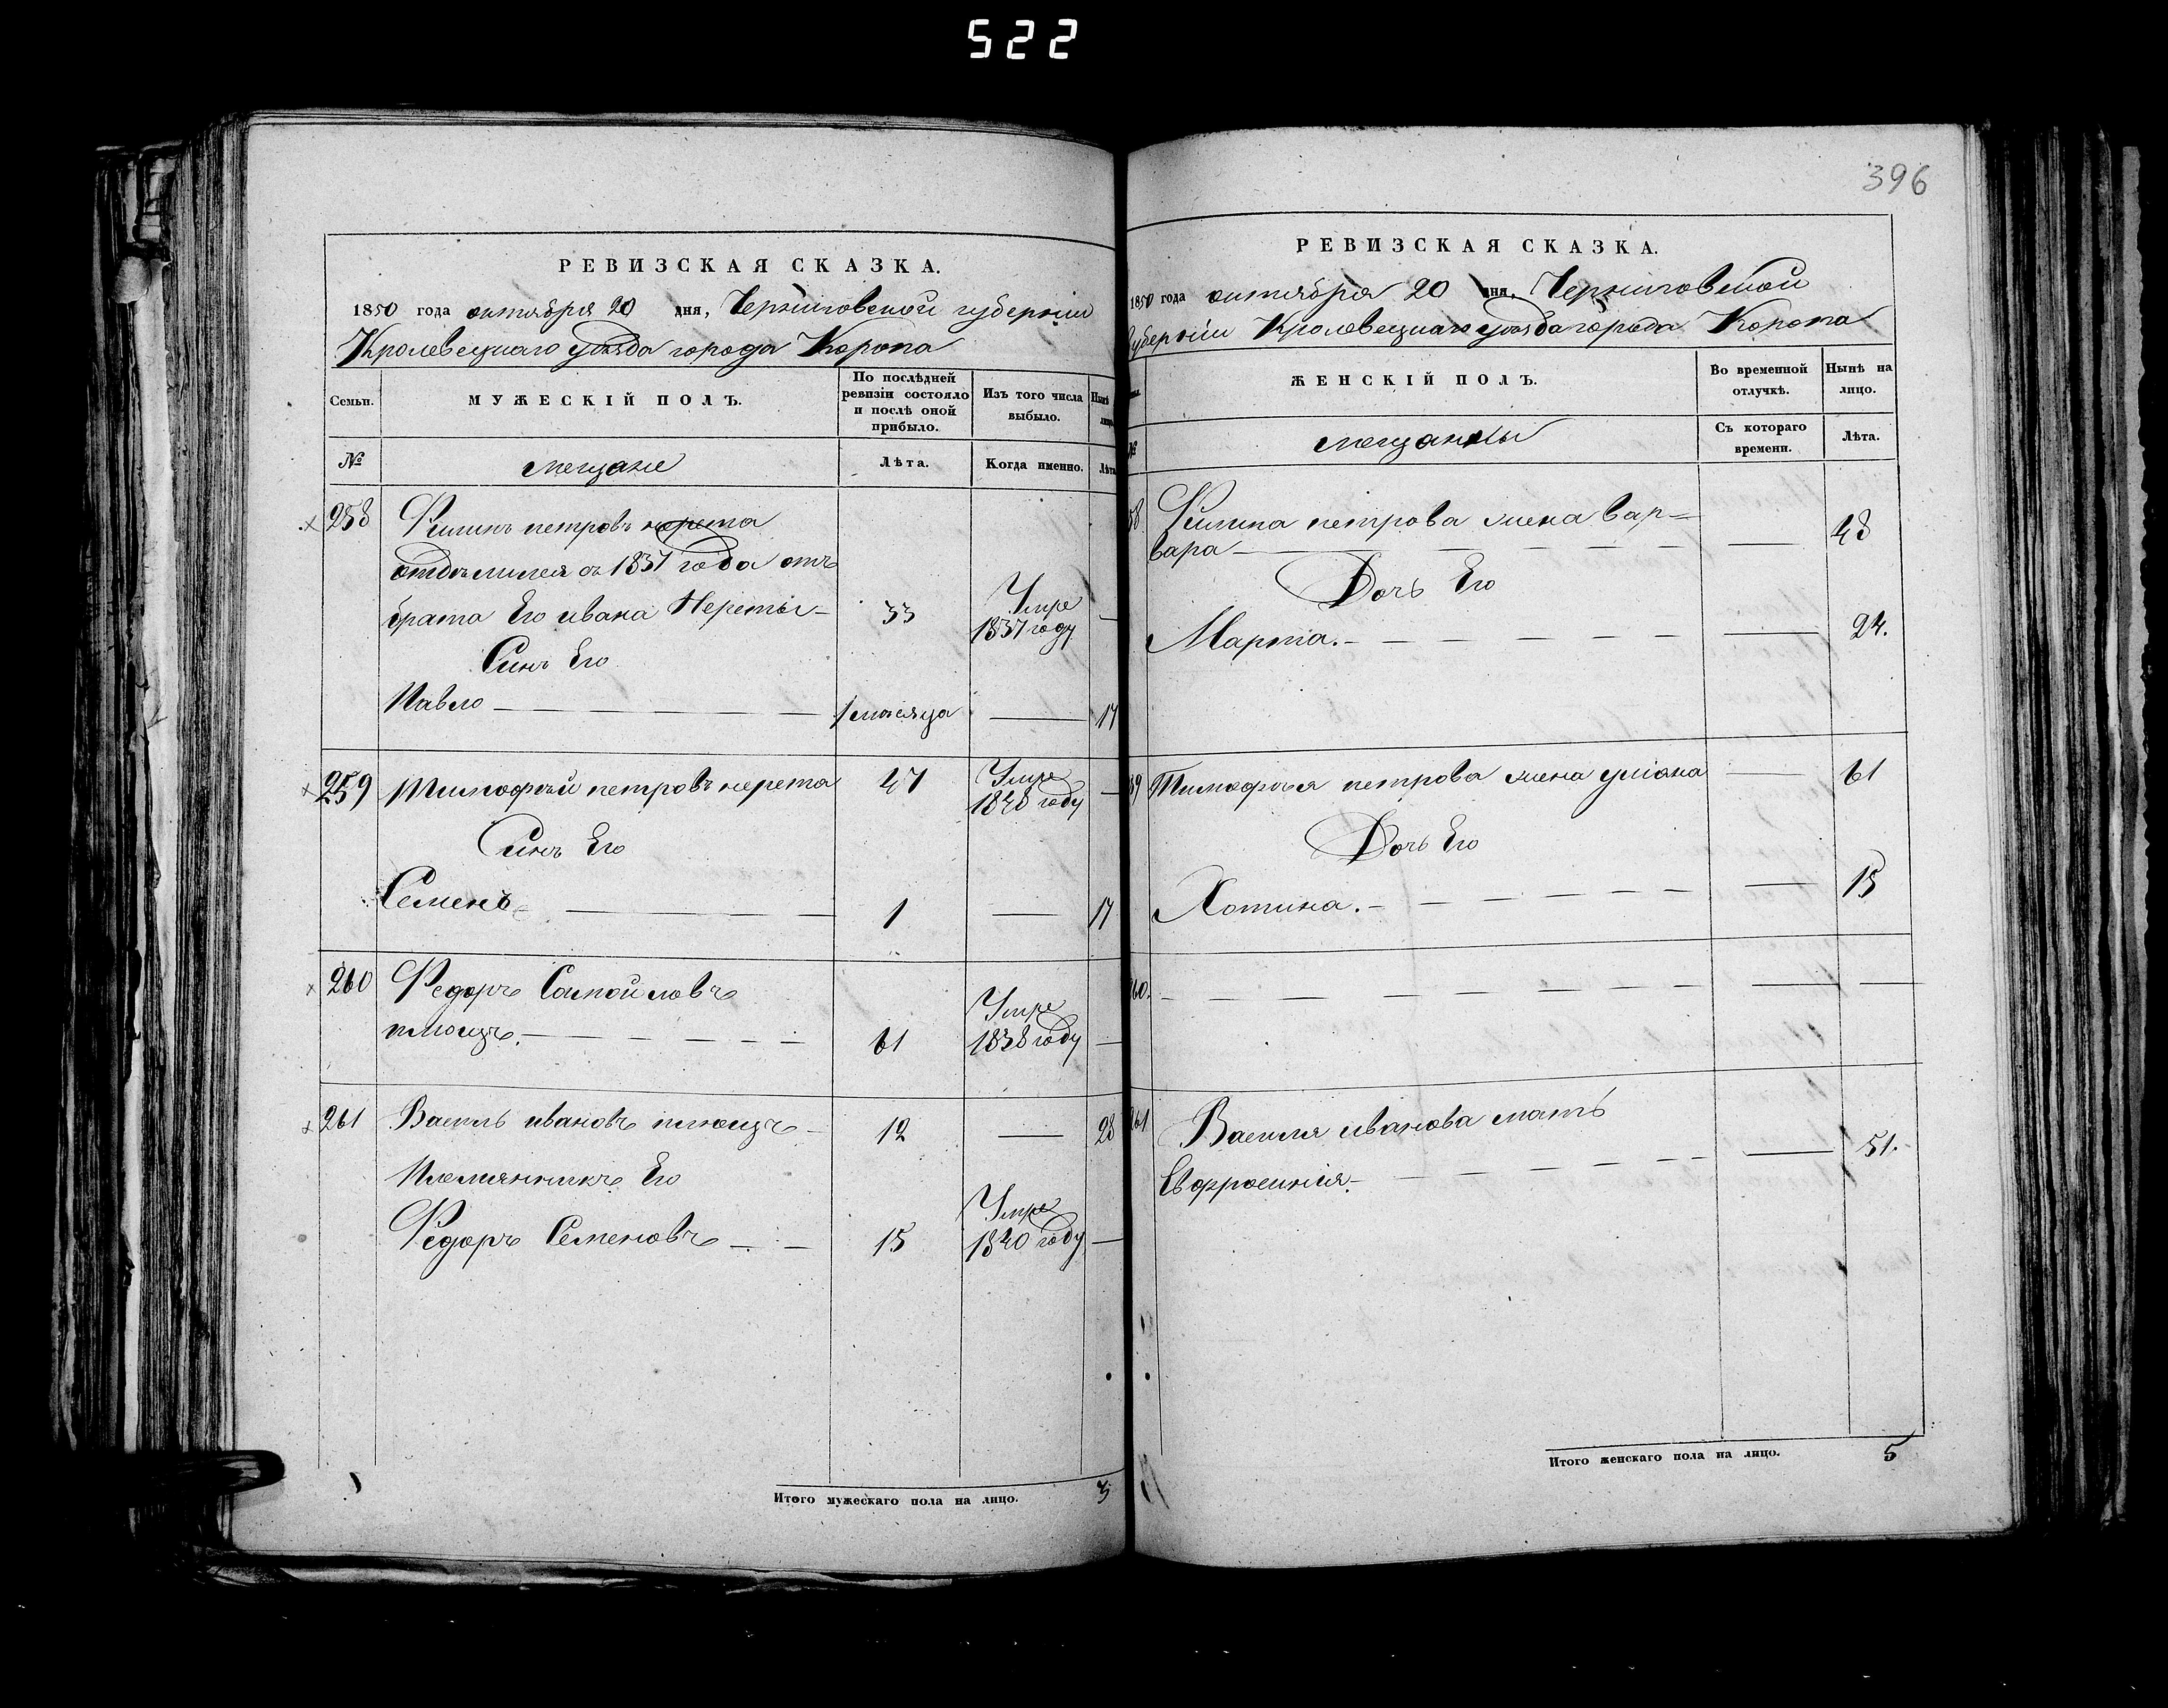 522
396
РЕВИЗСКАЯ СКАЗКА.
1850 года октября 20 дня, Черниговской губерніи
Кролевецкаго уѣзда города Коропа
Семьи.
МУЖЕСКІЙ ПОЛЪ.
По послѣдней
ревизіи состояло
и послѣ оной
прибыло.
Изъ того числа
выбыло.
Нынѣ
лицо
№
мещане
Лѣта.
Когда именно.
Лѣта
258 Филипъ петровъ нерета
отдѣлился съ 1837 года отъ
брата Его ивана Нереты 33 Умре
1837 году
Синъ Его
Павло 1 месяца 17
259 Тимофѣй петровъ нерета 47 Умре
1848 году
Синъ Его
Семенъ 1 17
260 Федоръ Самойловъ
плющъ. 61 Умре
1838 году
261 Василь ивановъ плющъ 12 28
Племянникъ Его
Федоръ Семеновъ 15 Умре
1840 году
Итого мужескаго пола на лицо. 3
РЕВИЗСКАЯ СКАЗКА.
1850 года октября 20 дня, Черниговской
губерніи Кролевецкаго уѣзда города Коропа
ЖЕНСКІЙ ПОЛЪ.
Во временной
отлучкѣ.
Нынѣ на
лицо.
№
мещанки
Съ котораго
времени.
Лѣта.
58 Филипа петрова жена Вар=
вара 48
Дочь Его
Марта. 24.
59 Тимофѣя петрова жена уліана 61
Дочь Его
Хотина. 15
60.
61 Василя иванова мать
Евфросинія 51.
Итого женскаго пола на лицо. 5